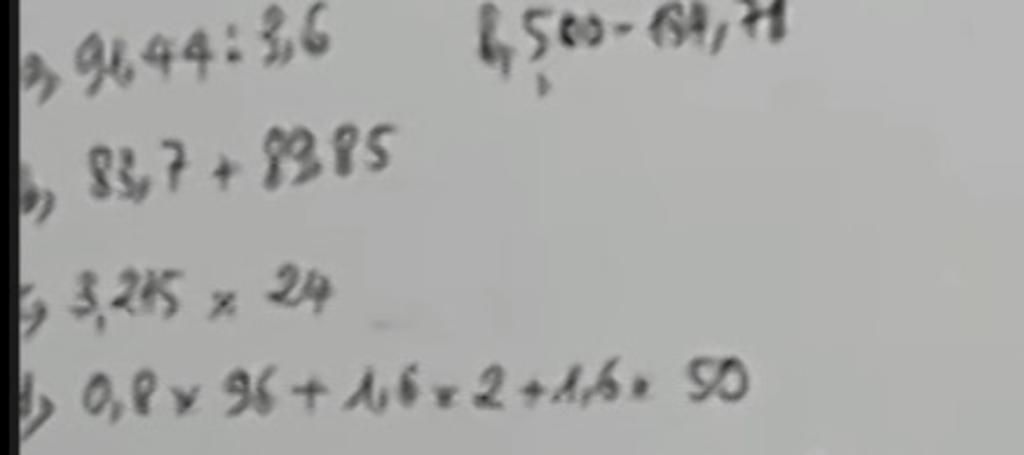 a, 91,44 : 3,6
500 -
b, 83,7 + 89,85
c, 3,215 x 24
d, 0,8 x 96 + 1,6 x 2 + 1,6 x 50